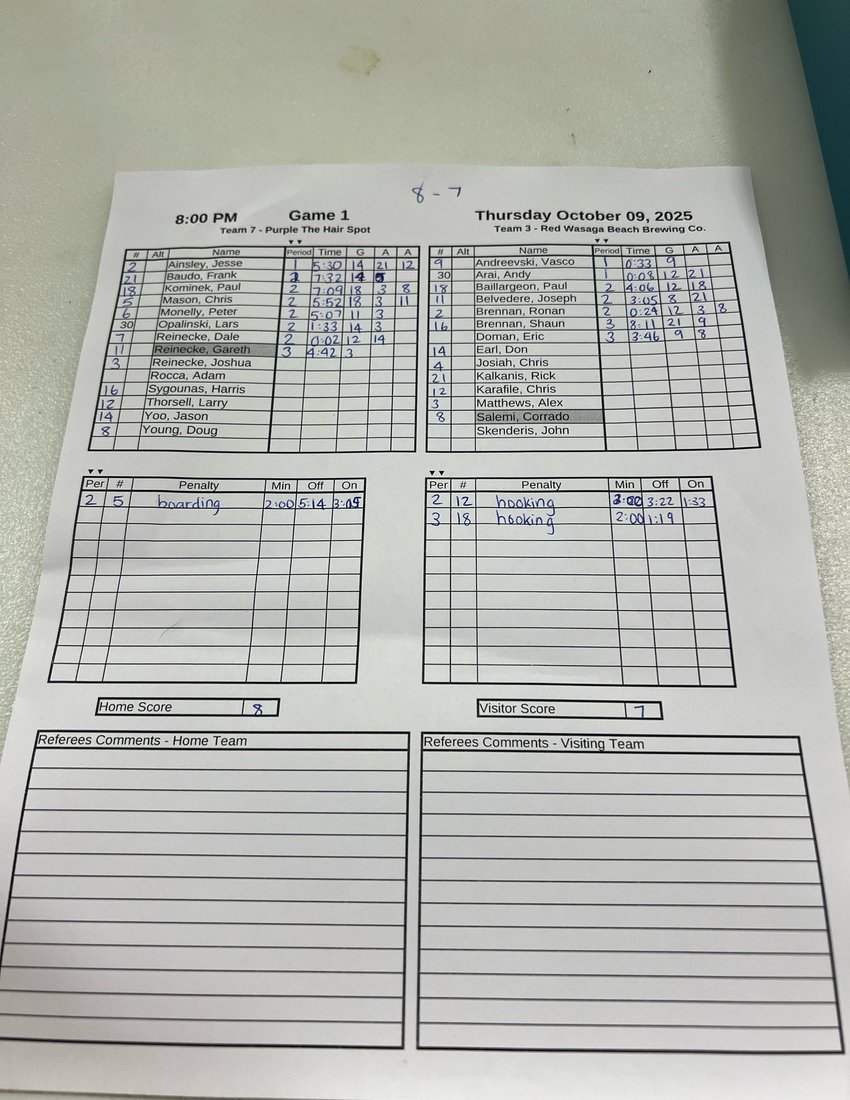 8 - 7
8:00 PM Game 1 Thursday October 09, 2025
Team 7 - Purple The Hair Spot Team 3 - Red Wasaga Beach Brewing Co.
# Alt Name Period Time G A A
2 Ainsley, Jesse 1 5:30 14 21 12
21 Baudo, Frank 2 7:32 14
18 Kominek, Paul 2 7:09 18 3 8
5 Mason, Chris 2 5:52 18 3 11
6 Monelly, Peter 2 5:07 11 3
30 Opalinski, Lars 2 1:33 14 3
7 Reinecke, Dale 2 0:02 12 14
11 Reinecke, Gareth 3 4:42 3
3 Reinecke, Joshua
Rocca, Adam
16 Sygounas, Harris
12 Thorsell, Larry
14 Yoo, Jason
8 Young, Doug
# Alt Name Period Time G A A
9 Andreevski, Vasco 1 0:33 9
30 Arai, Andy 1 0:08 12 21
18 Baillargeon, Paul 2 4:06 12 18
11 Belvedere, Joseph 2 3:05 8 21
2 Brennan, Ronan 2 0:24 12 3 8
16 Brennan, Shaun 3 8:11 21 9
Doman, Eric 3 3:46 9 8
14 Earl, Don
4 Josiah, Chris
21 Kalkanis, Rick
12 Karafile, Chris
3 Matthews, Alex
8 Salemi, Corrado
Skenderis, John
Per # Penalty Min Off On
2 5 boarding 2:00 5:14 3:05
Per # Penalty Min Off On
2 12 hooking 2:00 3:22 1:33
3 18 hooking 2:00 1:19
Home Score 8
Visitor Score 7
Referees Comments - Home Team
Referees Comments - Visiting Team